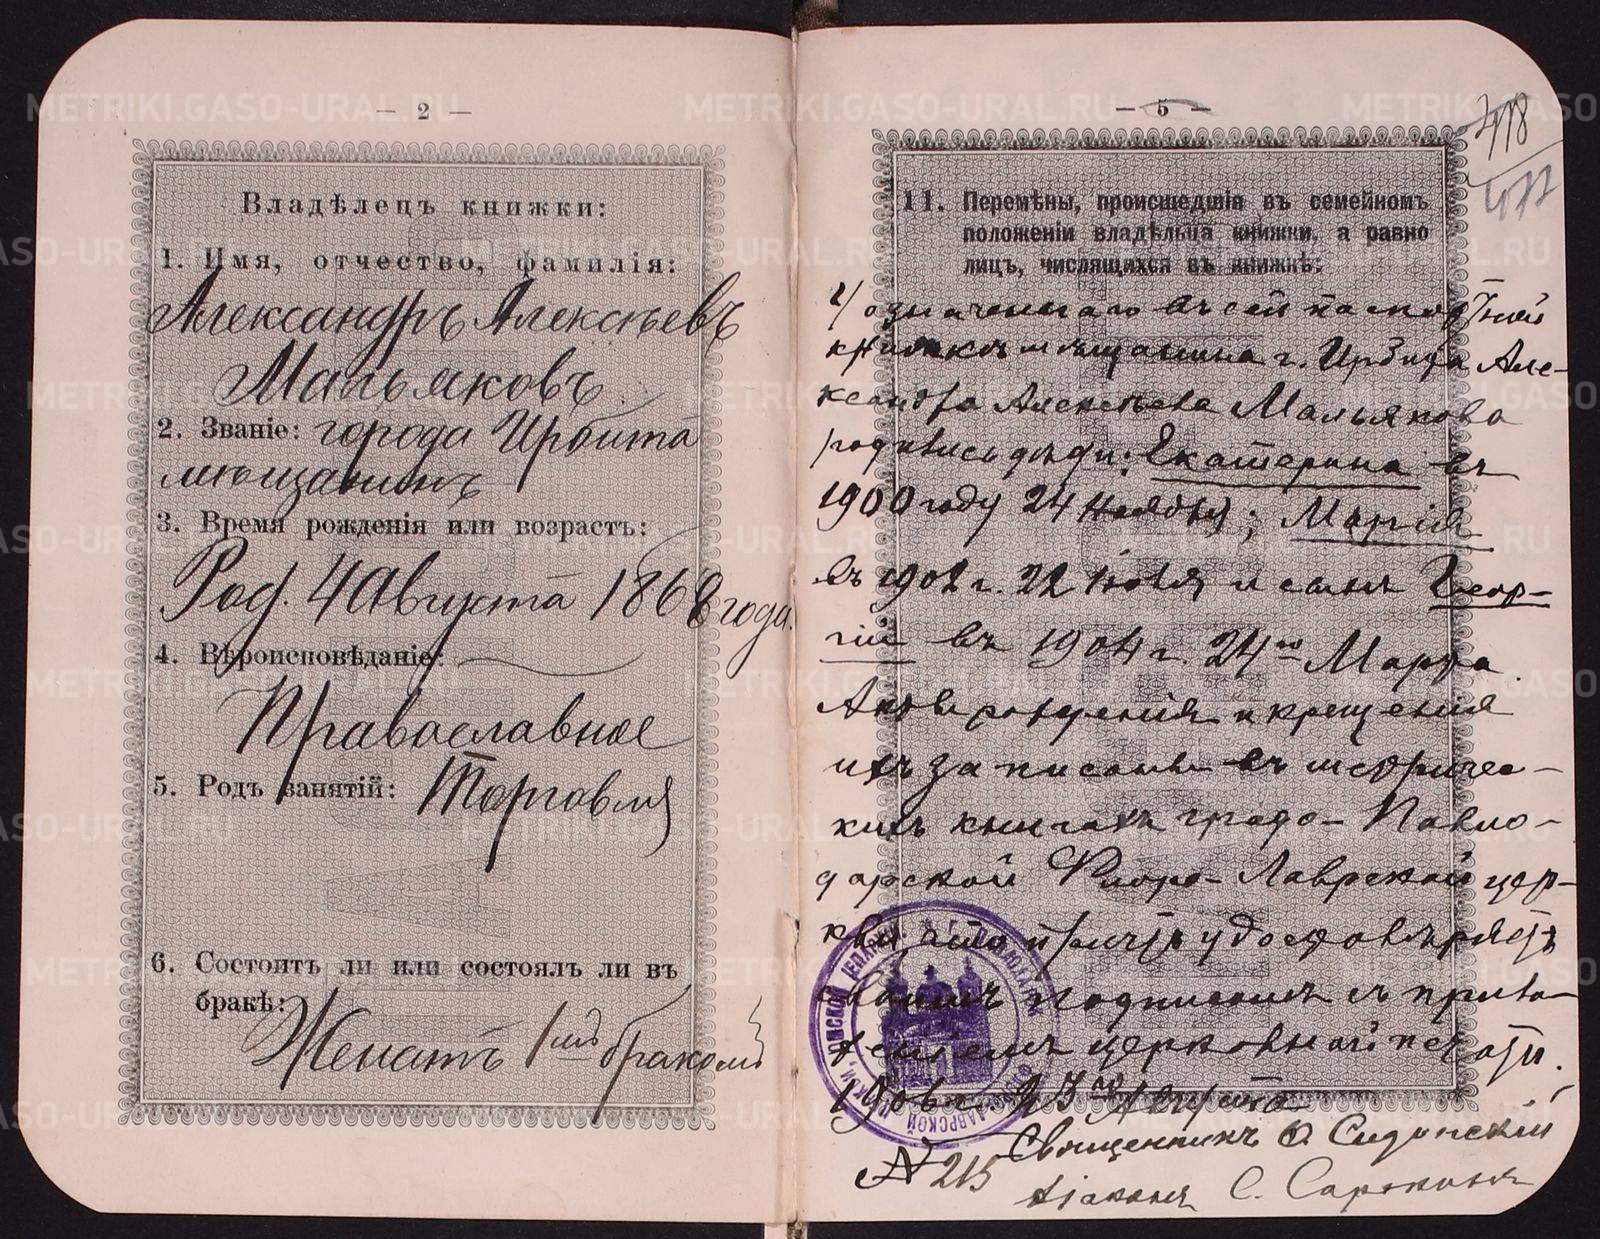 — 2 —
Владѣлецъ книжки:
1. Имя, отчество, фамилія:
Александръ Алексѣевъ
Мальяковъ
2. Званіе: города Ирбита
мѣщанинъ
3. Время рожденія или возрастъ:
Род. 4 Августа 1868 года.
4. Вѣроисповѣданіе:
Православное
5. Родъ занятій: Торговля
6. Состоитъ ли или состоялъ ли въ
бракѣ:
Женатъ 1мъ бракомъ
— 5 —
418
477
11. Перемѣны, происшедшія въ семейномъ
положеніи владѣльца книжки, а равно
лицъ, числящихся въ книжкѣ:
У означеннаго въ сей паспортной
книжкѣ мѣщанина г. Ирбита Але-
ксандра Алексѣева Мальякова
родились дѣти: Екатерина въ
1900 году 24 Ноября; Марія
въ 1902 г. 22 Іюля и сынъ Геор-
гій въ 1904 г. 24го Марта
Акты рожденія и крещенія
ихъ записаны въ метричес-
кихъ книгахъ градо-Павло-
дарской Флоро-Лаврской цер-
кви, что причтъ удостовѣряетъ
своимъ подписомъ съ прило-
женіемъ церковной печати.
1906 г. 23го Августа
Священникъ
Діаконъ С.
№ 215
METRIKI.GASO-URAL.RU